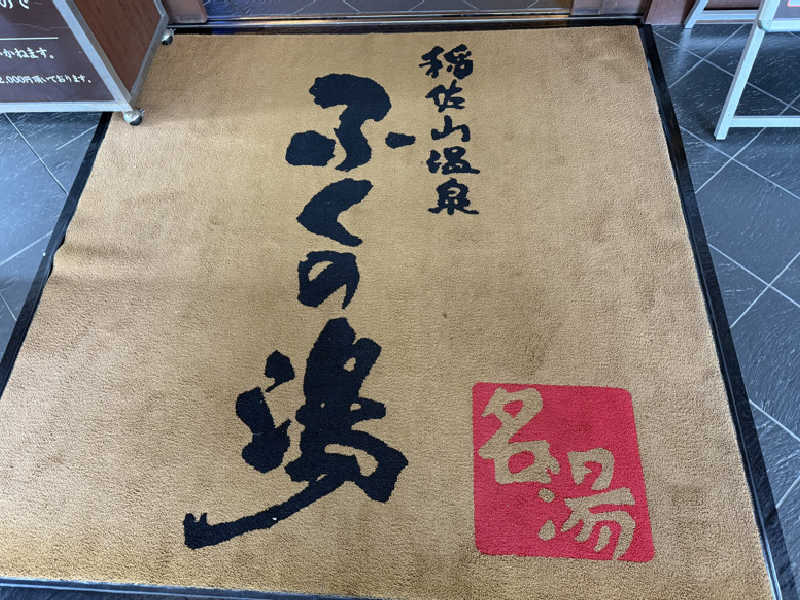 稲佐山温泉
ふくの湯
名湯
かねます。
2,000円頂いております。